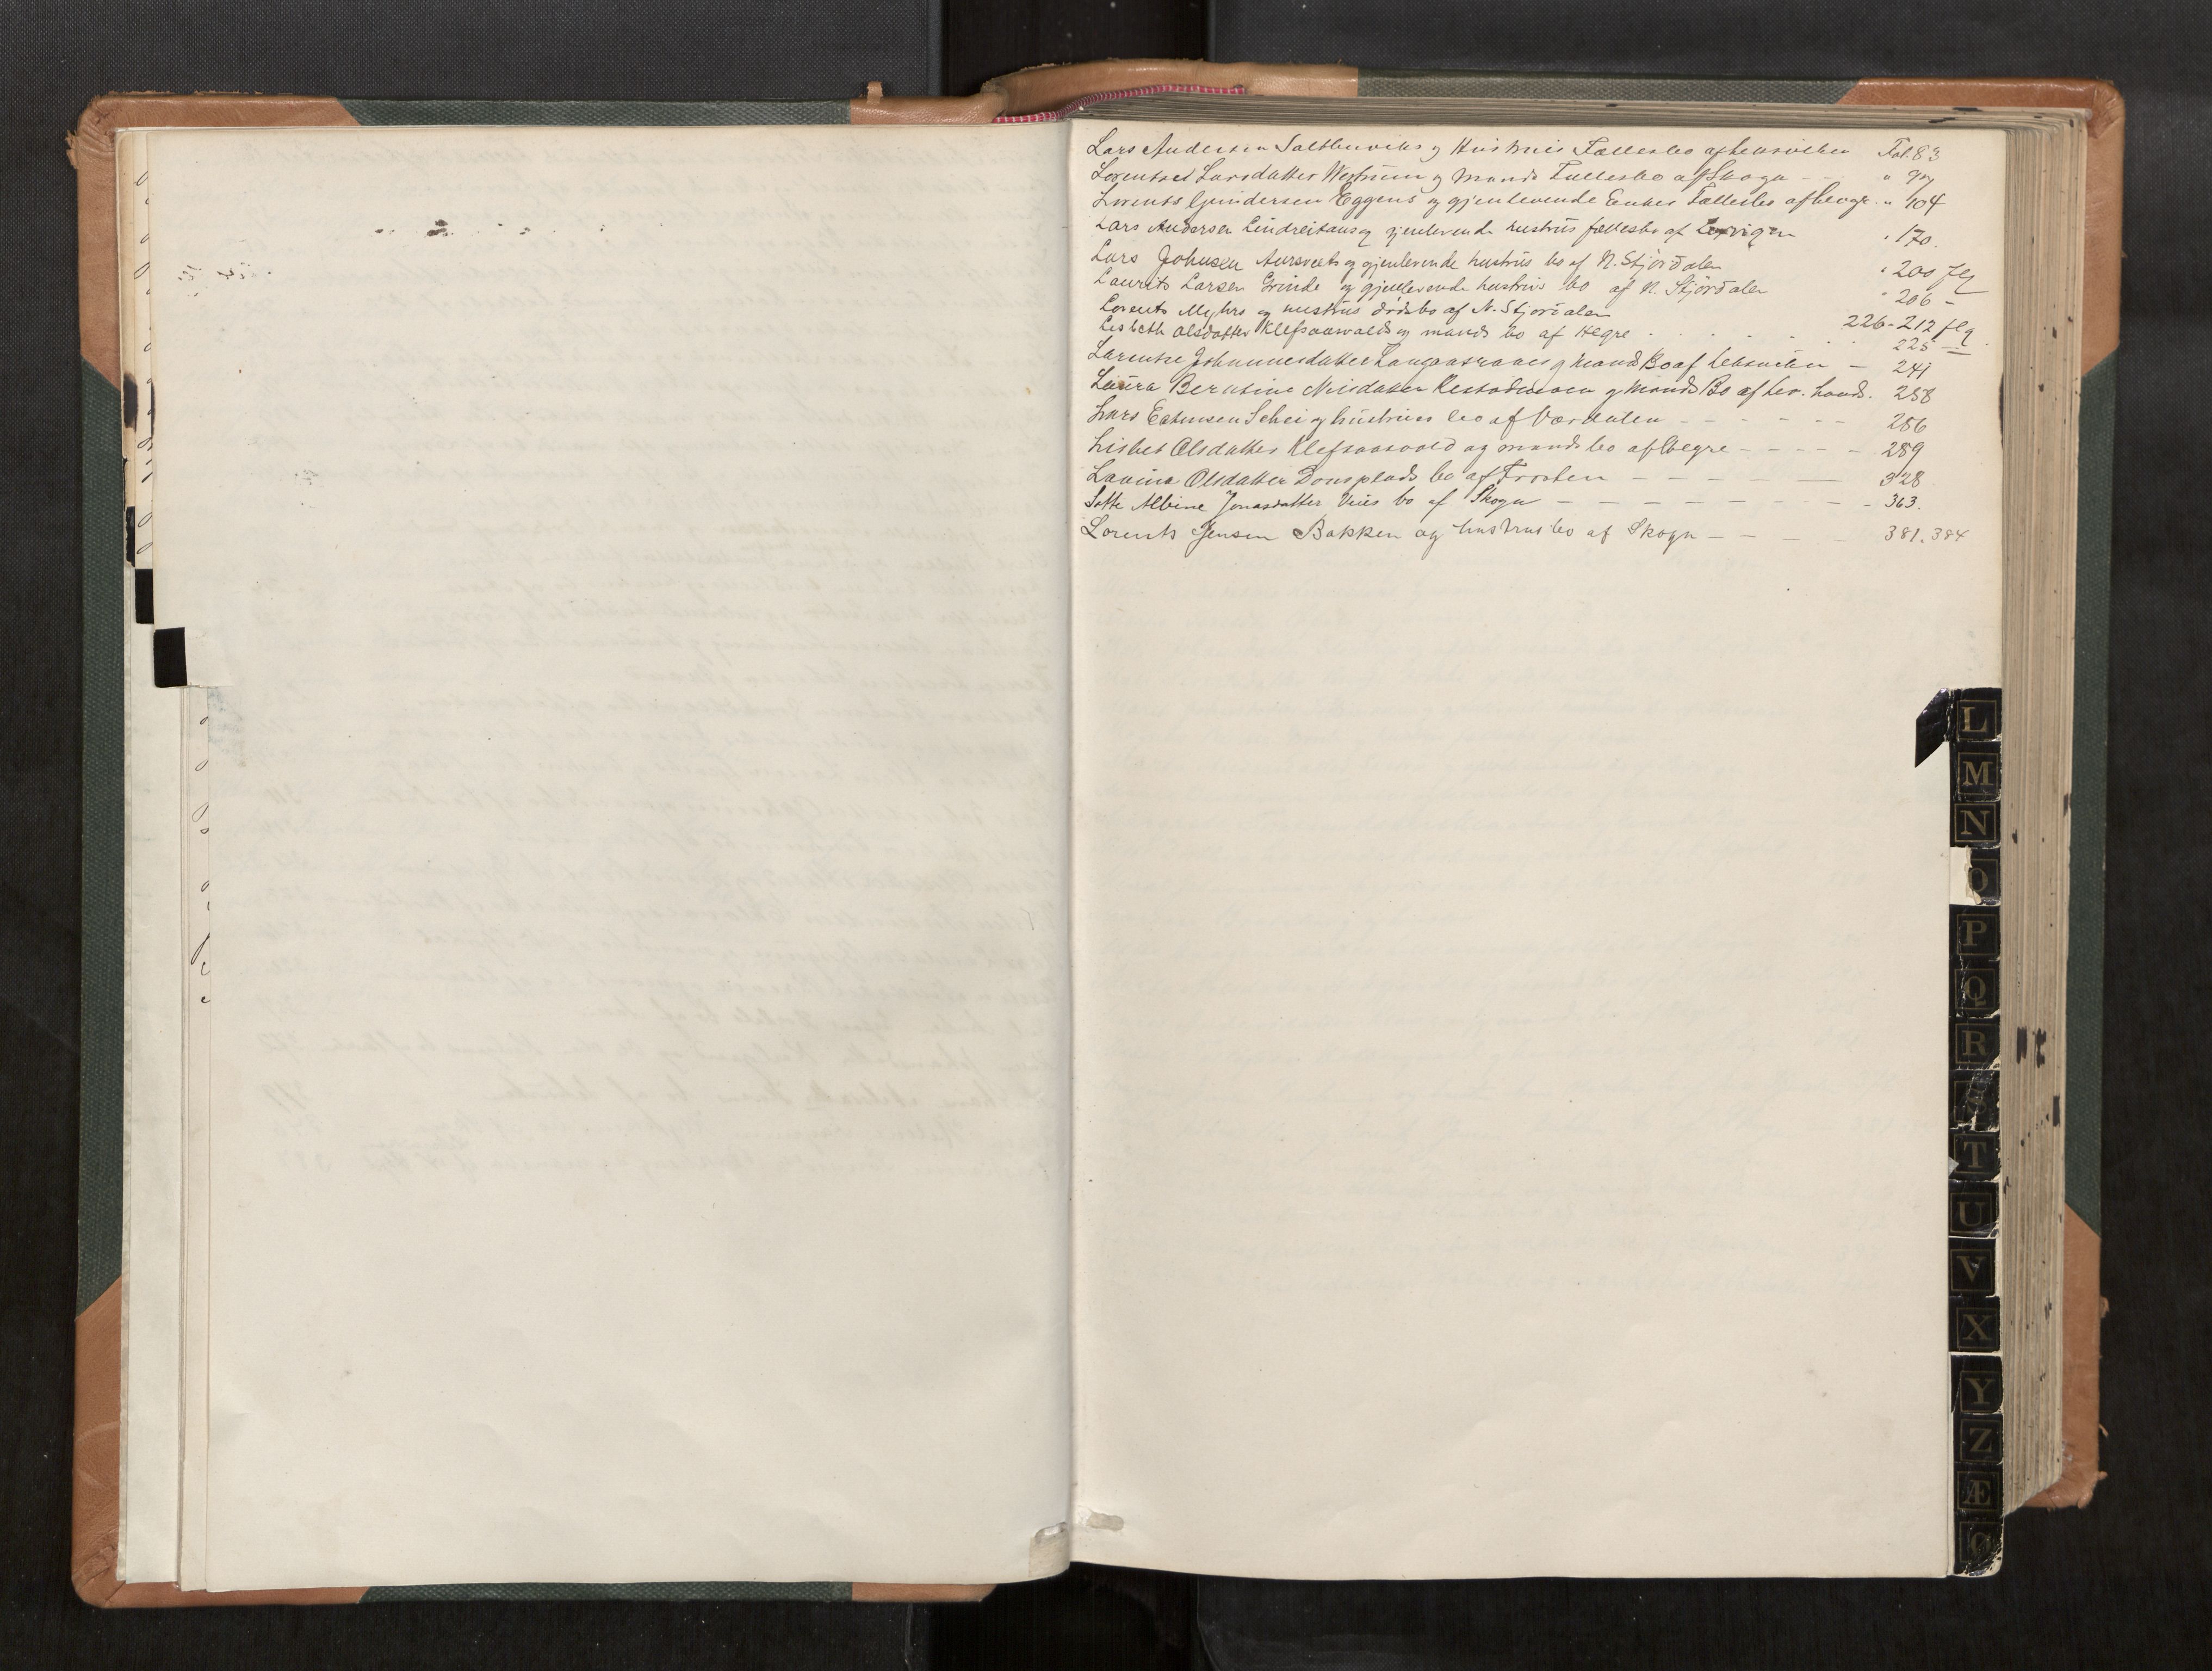 Lars Andersen Saltbuviks og Hustrus Fællesbo af Leksviken Fol. 83
Lorentse Larsdatter Westrum og Mands Fællesbo af Skogn - - " 94
Lorents Gundersen Eggens og gjenlevende Enkes Fællesbo af Skogn. " 104
Lars Andersen Lindreitans og gjenlevende hustrus fællesbo af Lexvigen " 170.
Lars Johnsen Aursveets og gjenlevende hustrus bo af N. Stjørdalen " 200 flg
Laurits Larsen Grinde og gjenlevende hustrus bo af N. Stjørdalen " 206 -
Lorents Myhrs og hustrus dødsbo af N. Stjørdalen 226-212 flg
Lisbeth Olsdatter Klefsaasvalds og mands bo af Hegre . . . . . 225
Larentse Johannesdatter Langaasranes og Mands Bo af Leksviken - 241
Laura Berntine Nilsdatter Restadmoen og Mands Bo af Lev. hands. 258
Lars Estensen Schei og hustrues bo af Værdalen - - - - - - 286
Lisbet Olsdatter Klefsaasvold og mands bo af Hegre - - - - - 289
Lavina Olsdatter Donsplads bo af Frosten - - - - - 328
Lotte Albine Jonasdatter Vuus bo af Skogn - - - - - - - 363.
Lorents Jensen Bakken og hustrus bo af Skogn - - - - 381. 384
L
M
N
O
P
Q
R
S
T
U
V
X
Y
Z
Æ
Ø